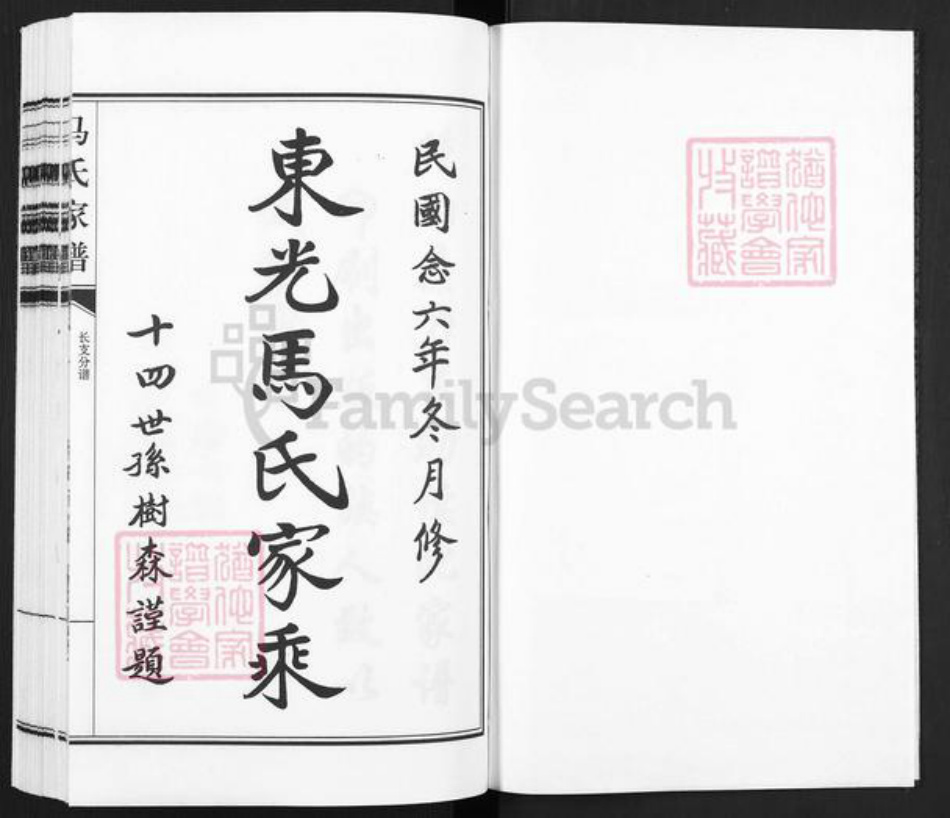 猶他家
譜學會
收藏
民國念六年冬月修
東光馬氏家乘
十四世孫樹森謹題
猶他家
譜學會
收藏
马氏家谱
长支分谱
FamilySearch